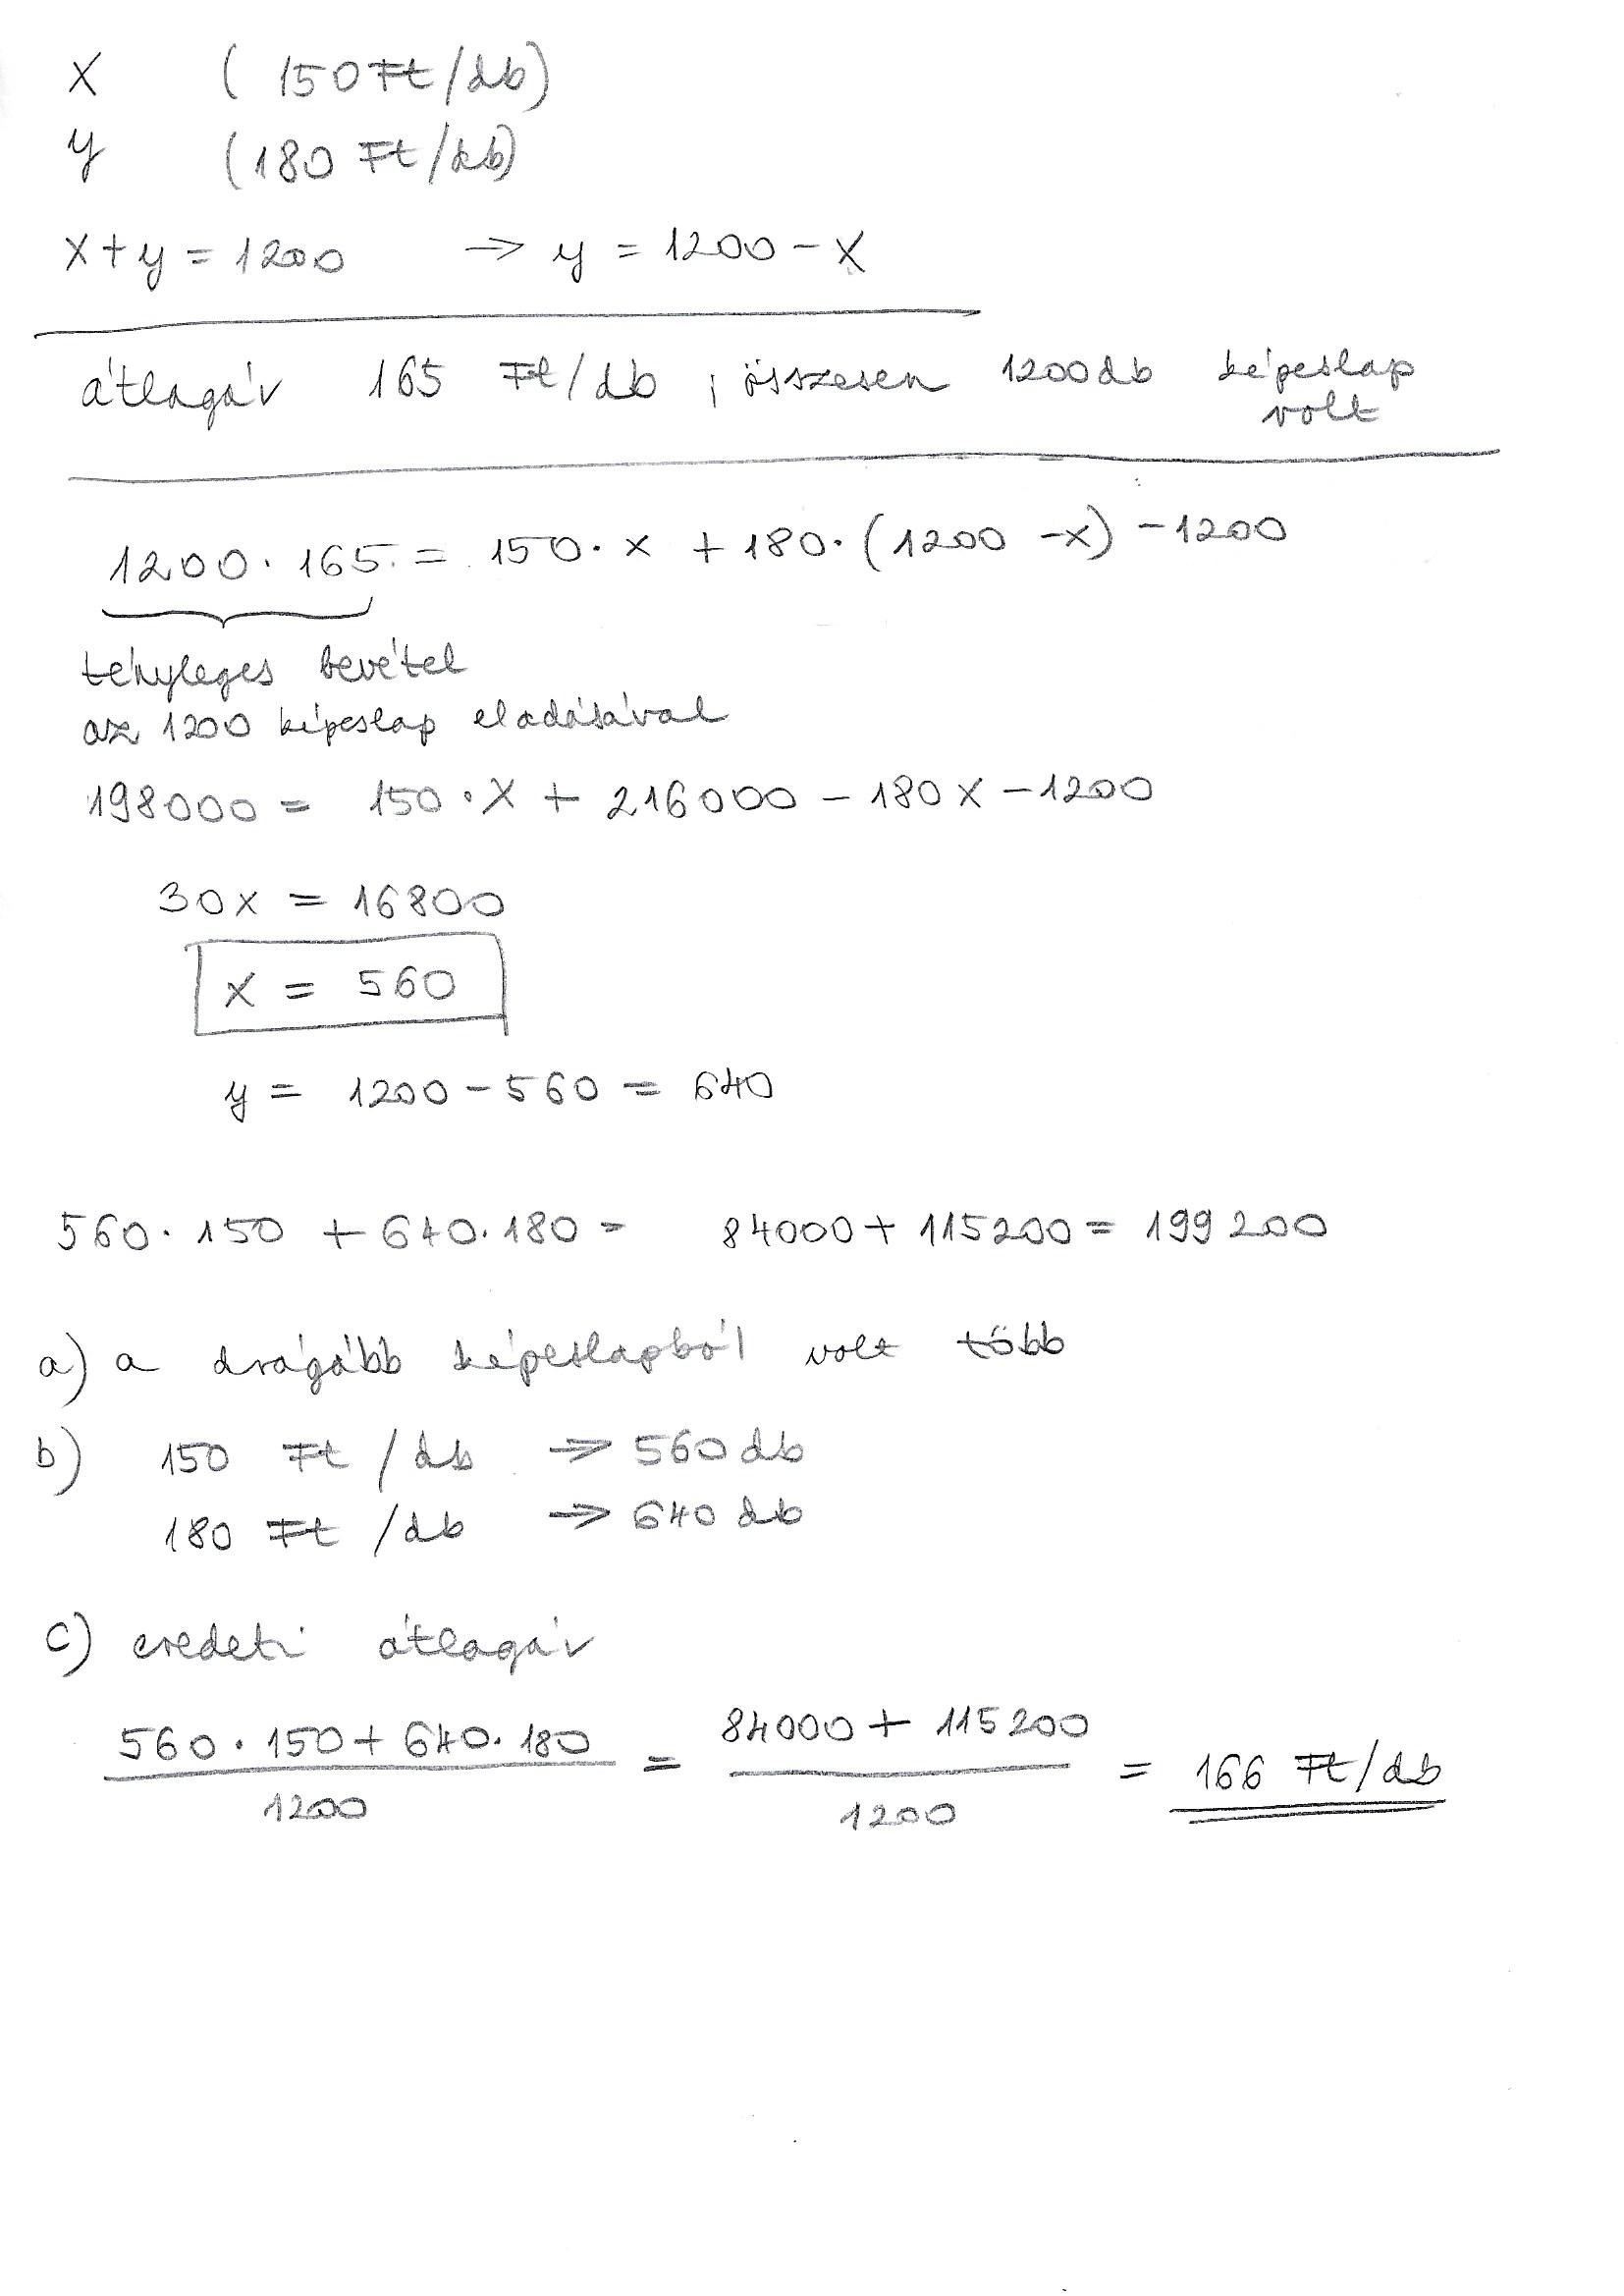 x (150 Ft/db)
y (180 Ft/db)
x + y = 1200 → y = 1200 - x
átlagár 165 Ft/db ; összesen 1200 db képeslap
volt
1200 · 165 = 150 · x + 180 · (1200 - x) - 1200
tényleges bevétel
az 1200 képeslap eladásával
198000 = 150 · x + 216000 - 180x - 1200
30x = 16800
x = 560
y = 1200 - 560 = 640
560 · 150 + 640 · 180 = 84000 + 115200 = 199200
a) a drágább képeslapból volt több
b) 150 Ft/db → 560 db
180 Ft/db → 640 db
c) eredeti átlagár
560 · 150 + 640 · 180 / 1200 = 84000 + 115200 / 1200 = 166 Ft/db